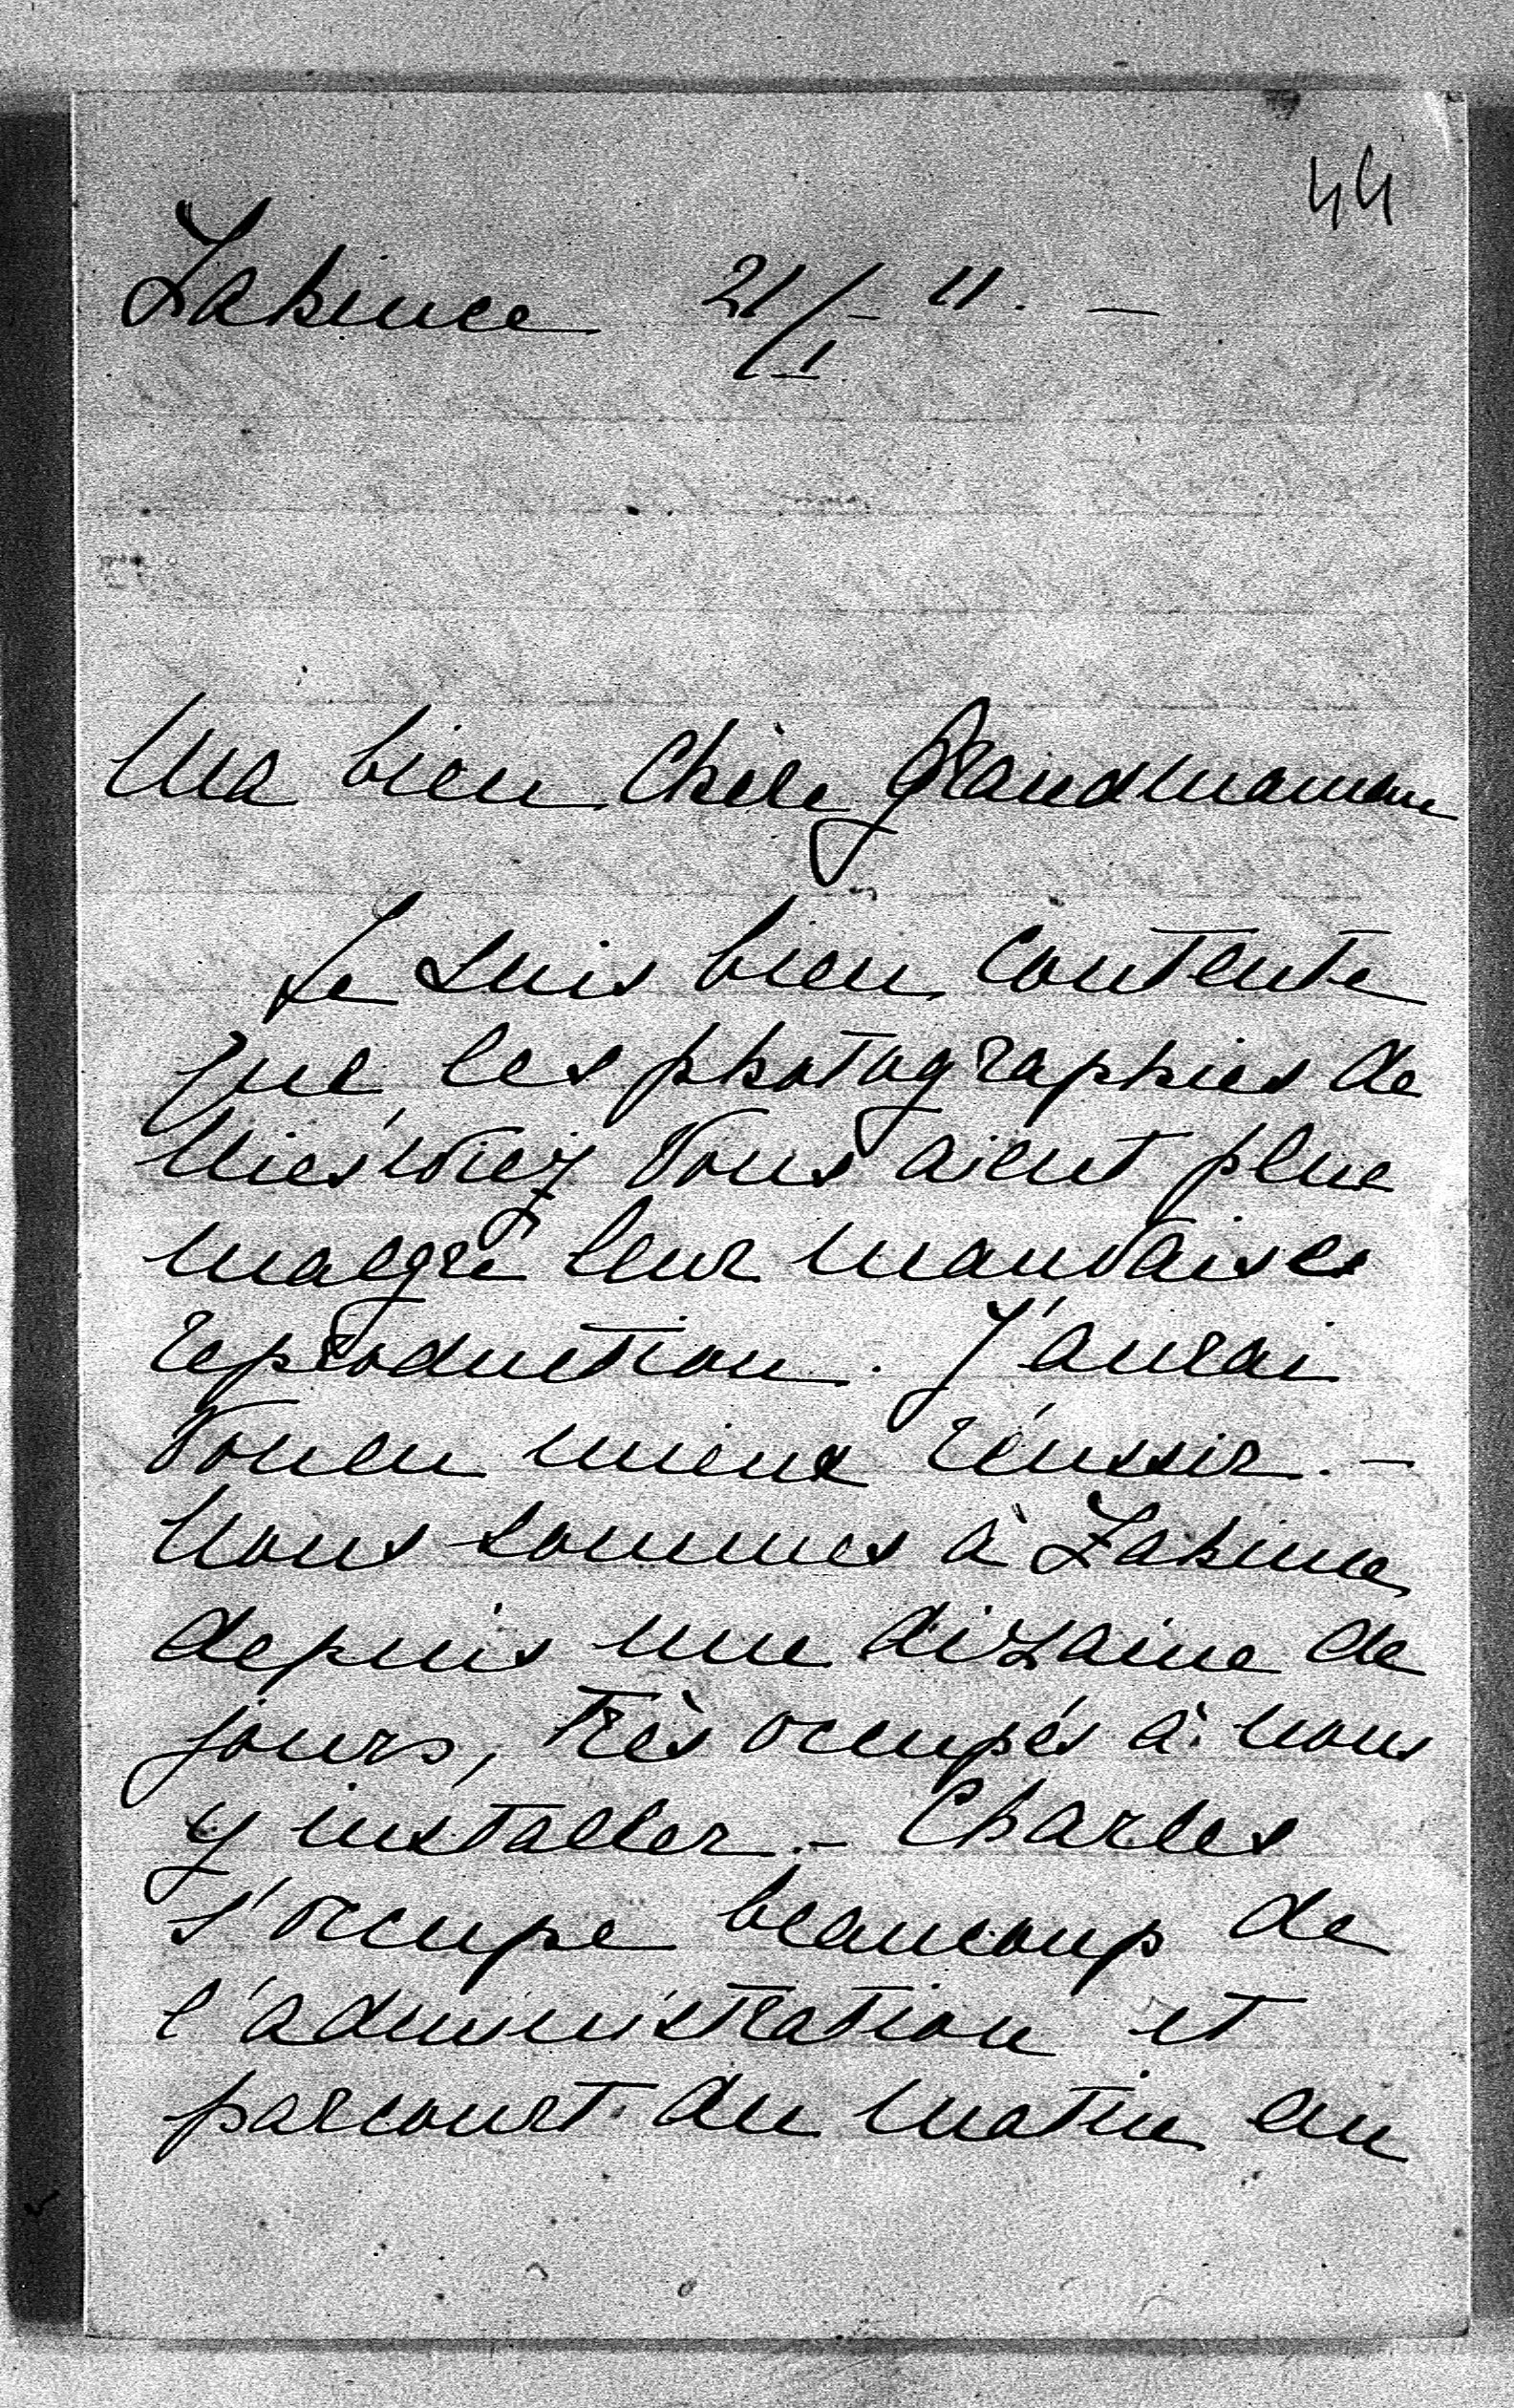 44
Łakince 21/I - 11. -
Ma bien chère Grandmaman
Je suis bien contente
que les photographies de
Nieśwież Vous aient plue
malgré leur mauvaises
reproduction. J'aurai
voulu mieux réussir. -
Nous sommes à Łakince
depuis une dizaine de
jours, très occupés à nous
y installer. - Charles
s'occupe beaucoup de
l'administration et
parcourt du matin au